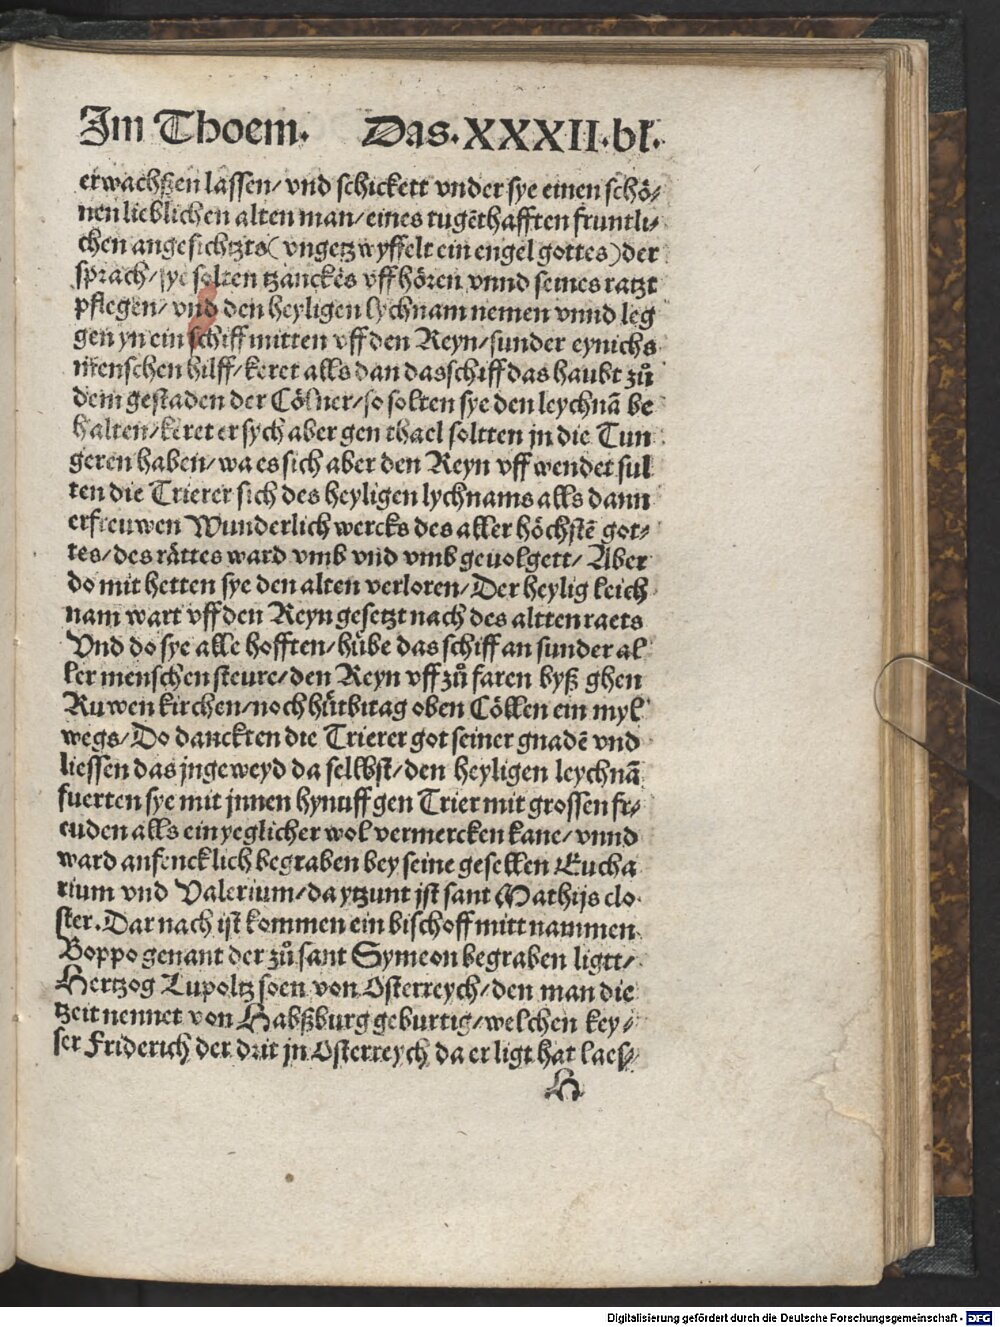 Im Thoem. Das.XXXII.bl.
erwachßen lassen/ vnd schickett vnder sye einen schö/
nen lieblichen alten man/ eines tugēthafften fruntli/
chen angesichtzts( vngetzwyffelt ein engel gottes) der
sprach/ sye solten tzanckēs vff hören vnnd seines ratzt
pflegen/ vnd den heyligen lychnam nemen vnnd leg
gen yn ein schiff mitten vff den Reyn/ sunder eynichs
menschen hilff/ keret alls dan das schiff das haubt zů
dem gestaden der Cölner/ so solten sye den leychnā be
halten/ keret er sych aber gen thael soltten jn die Tun
geren haben/ wa es sich aber den Reyn vff wendet sul
ten die Trierer sich des heyligen lychnams alls dann
erfreuwen Wunderlich wercks des aller höchstē got/
tes/ des råttes ward vmb vnd vmb geuolgett/ Aber
do mit hetten sye den alten verloren/ Der heylig leich
nam wart vff den Reyn gesetzt nach des altten raets
Vnd do sye alle hofften/ hůbe das schiff an sunder al
ler menschen steure/ den Reyn vff zů faren byß ghen
Ruwen kirchen/ noch hütbitag oben Cöllen ein myl
wegs/ Do danckten die Trierer got seiner gnadē vnd
liessen das jngeweyd da sellbst/ den heyligen leychnā
fuerten sye mit jnnen hynuff gen Trier mit grossen fr/
euden alls ein yeglicher wol vermercken kane/ vnnd
ward anfencklich begraben bey seine gesellen Eucha
rium vnd Valerium/ da ytzunt jst sant Mathijs clo
ster. Dar nach ist kommen ein bischoff mitt nammen
Boppo genant der zů sant Symeon begraben ligtt/
Hertzog Lupoltz soen von Osterreych/ den man die
tzeit nennet von Habßburg geburtig/ welchen key/
ser Friderich der drit jn Osterreych da er ligt hat laes/
H
Digitalisierung gefördert durch die Deutsche Forschungsgemeinschaft - DFG